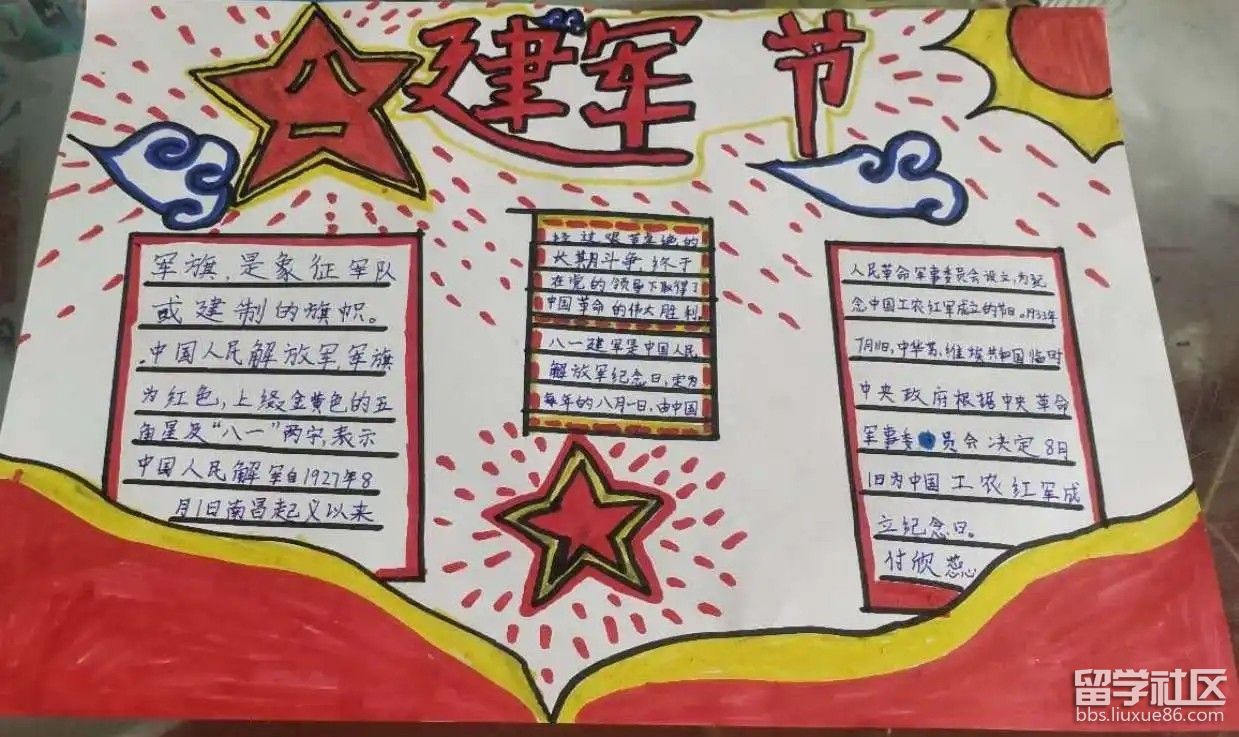 八一
建军节
军旗,是象征军队
或建制的旗帜。
中国人民解放军,军旗
为红色,上缀金黄色的五
角星及“八一”两字,表示
中国人民解军自1927年8
月1日南昌起义以来
经过艰苦卓绝的
长期斗争,终于
在党的领导下取得了
中国革命的伟大胜利
八一建军是中国人民
解放军纪念日,定为
每年的八月一日,由中国
人民革命军事委员会设立,为纪
念中国工农红军成立的节日。1933年
7月1日,中华苏,维埃共和国临时
中央政府根据中央革命
军事委员会决定8月
1日为中国工农红军成
立纪念日。
付欣蕊
留学社区
bbs.liuxue86.com